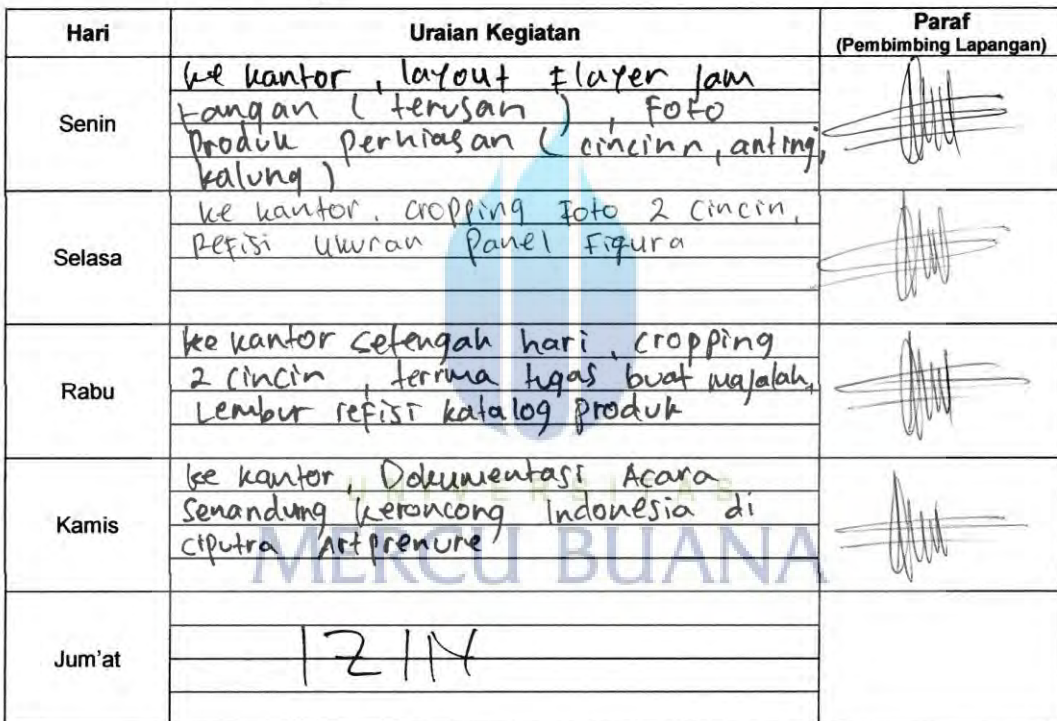 Hari Uraian Kegiatan Paraf
(Pembimbing Lapangan)
Senin
ke kantor, layout Flayer jam
tangan (terusan), Foto
Produk Perhiasan (cincinn, anting,
kalung)
Selasa
ke kantor, cropping Foto 2 cincin,
Refisi ukuran Panel Figura
Rabu
ke kantor setengah hari, cropping
2 cincin, terrima tugas buat majalah,
Lembur refisi katalog produk
Kamis
ke kantor, Dokumentasi Acara
Senandung Keroncong Indonesia di
ciputra Artprenure
UNIVERSITAS
MERCU BUANA
Jum'at
IZIN